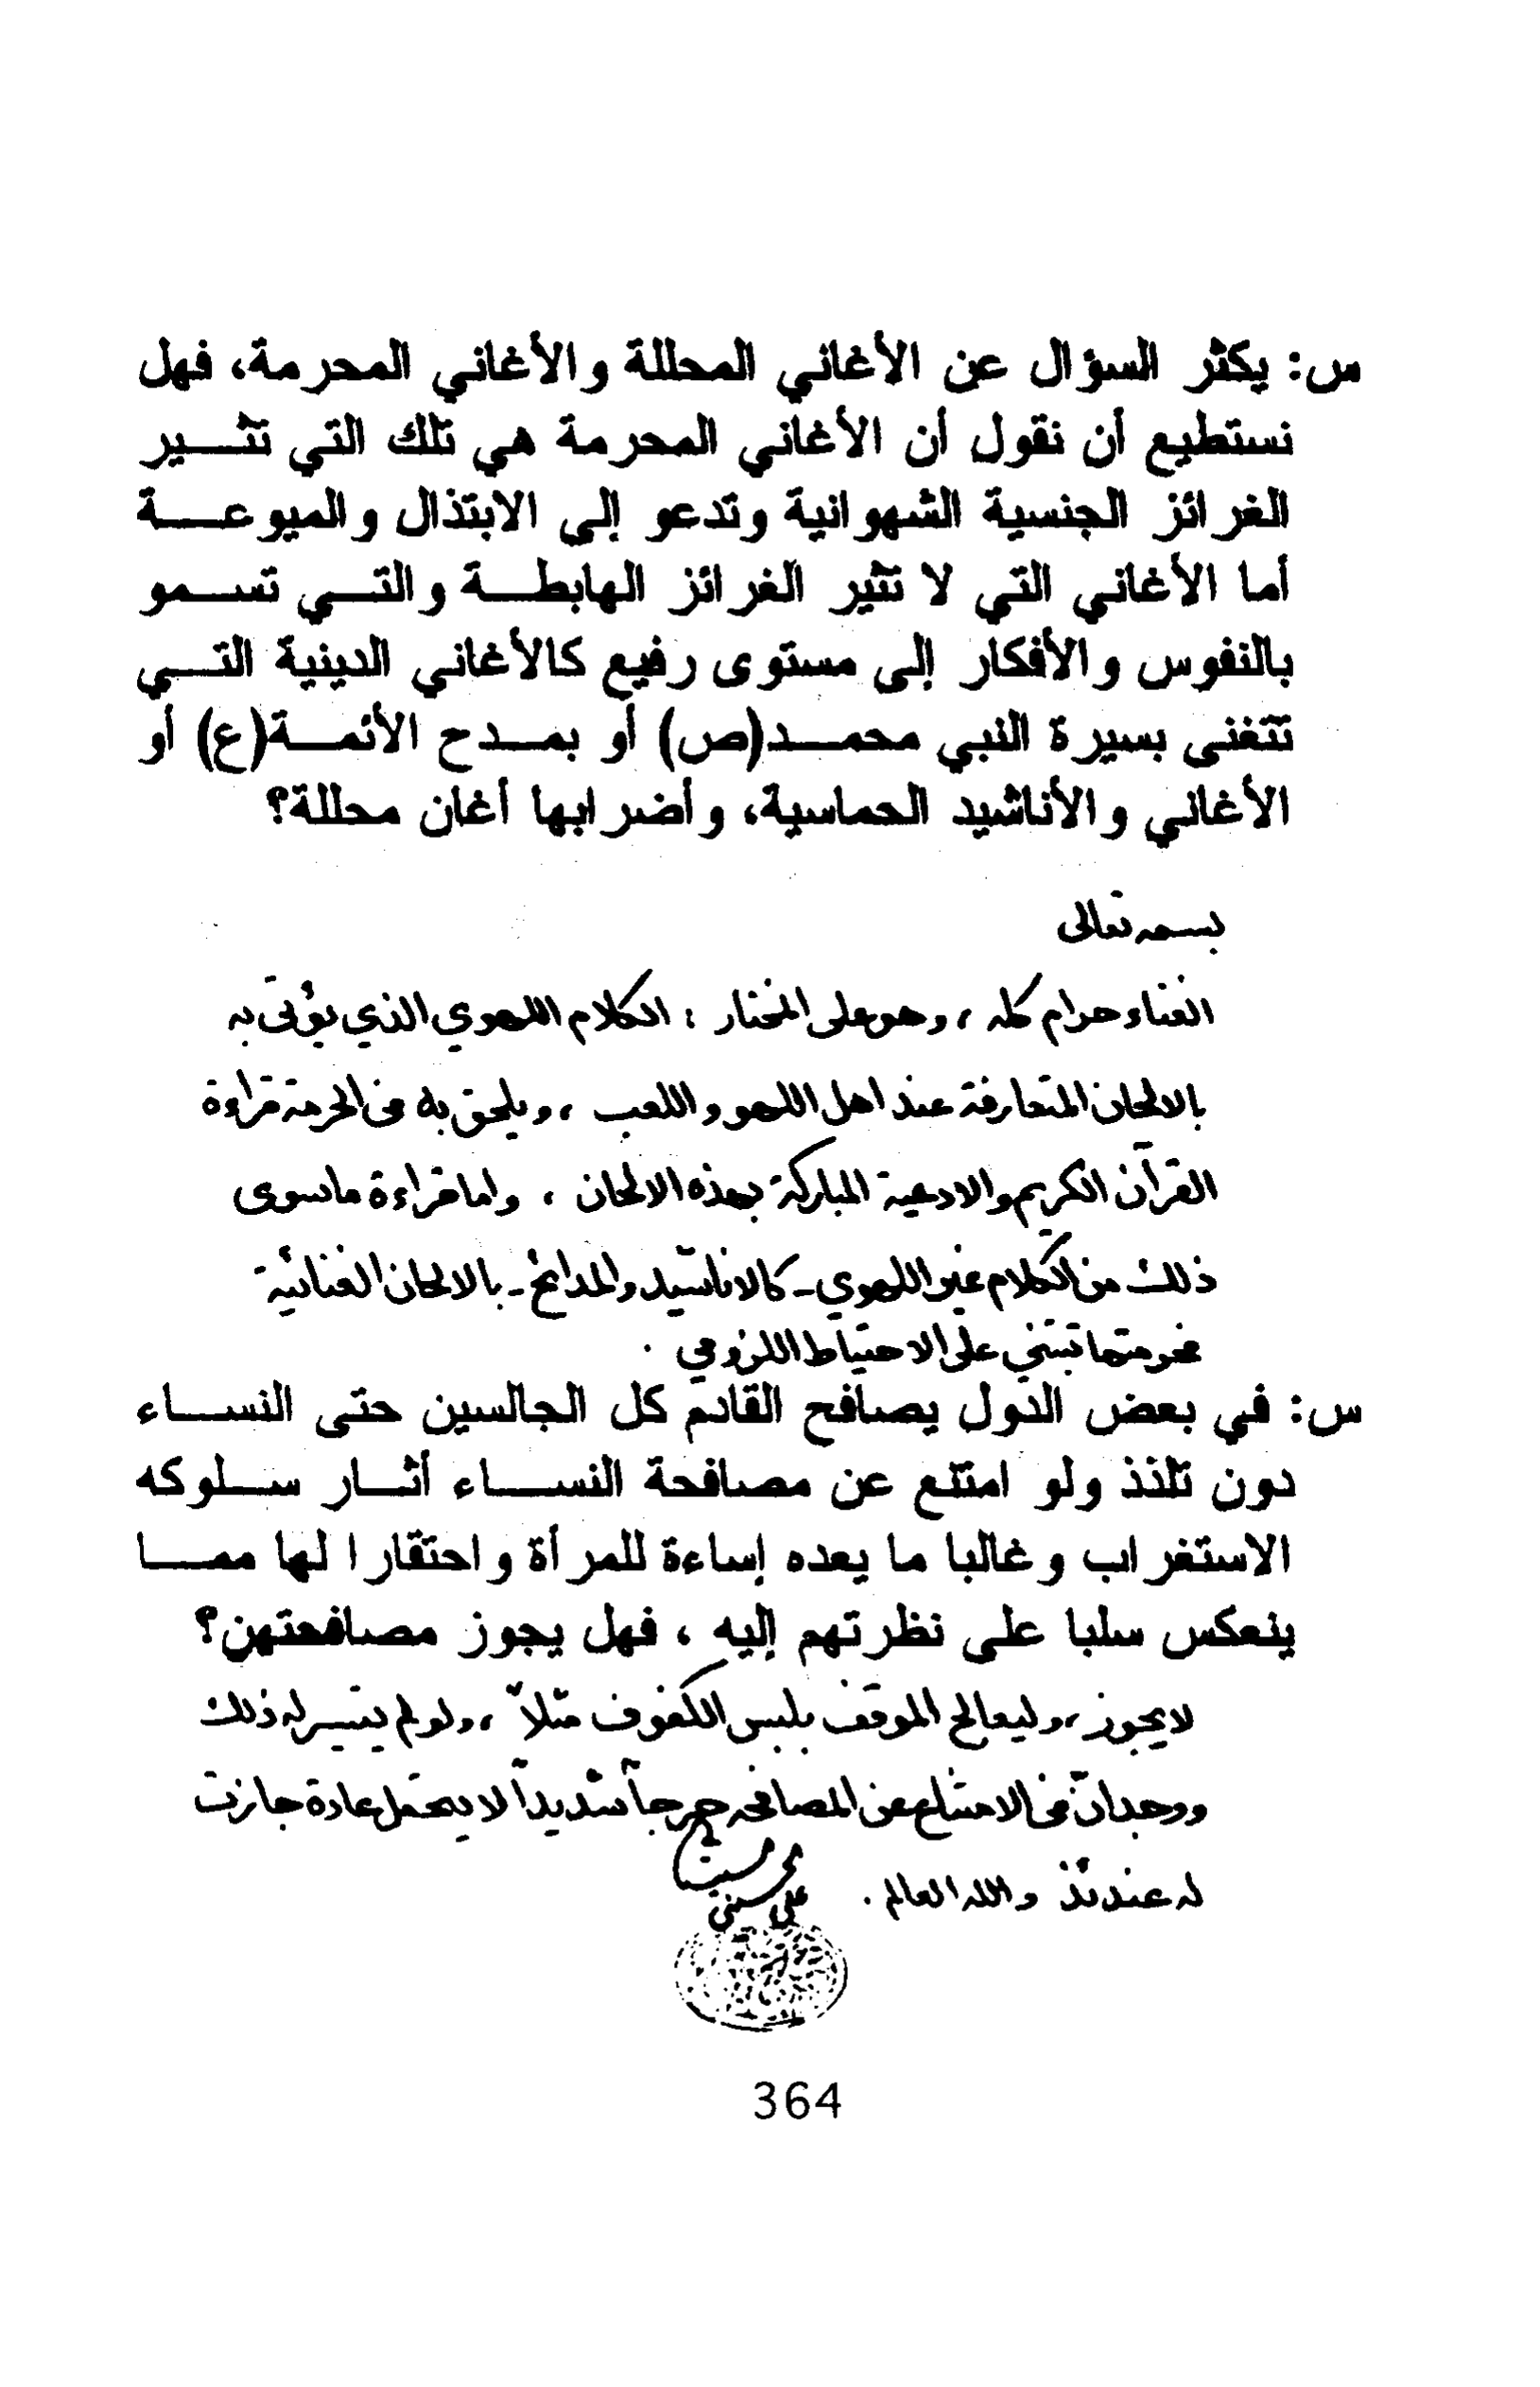 س: يكثر السؤال عن الأغاني المحللة والأغاني المحرمة، فهل
نستطيع أن نقول أن الأغاني المحرمة هي تلك التي تثير
الغرائز الجنسية الشهوانية وتدعو إلى الابتذال والميوعة
أما الأغاني التي لا تثير الغرائز الهابطة والتي تسمو
بالنفوس والأفكار إلى مستوى رفيع كالأغاني الدينية التي
تتغنى بسيرة النبي محمد(ص) أو بمدح الأئمة(ع) أو
الأغاني والأناشيد الحماسية، وأضرابها أغان محللة؟
بسمه تعالى
الغناء حرام كله ، وهو على المختار : الكلام اللهوي الذي يؤتى به
بالالحان المتعارفة عند اهل اللهو واللعب ، ويلحق به في الحرمة قراءة
القرآن الكريم والادعية المباركة بهذه الالحان ، واما قراءة ما سوى
ذلك من الكلام غير اللهوي - كالاناشيد والمدائح - بالالحان الغنائية
فحرمتها تبتني على الاحتياط اللزومي .
س: في بعض الدول يصافح القادم كل الجالسين حتى النساء
دون تلذذ ولو امتنع عن مصافحة النساء أثار سلوكه
الاستغراب وغالبا ما يعده إساءة للمرأة واحتقارا لها مما
ينعكس سلبا على نظرتهم إليه ، فهل يجوز مصافحتهن؟
لا يجوز ، وليعالج الموقف بلبس الكفوف مثلاً ، ولو لم يتيسر له ذلك
ووجد ان في الامتناع عن المصافحه حرجاً شديداً لا يتحمل عادة جازت
له عندئذ والله العالم .
364